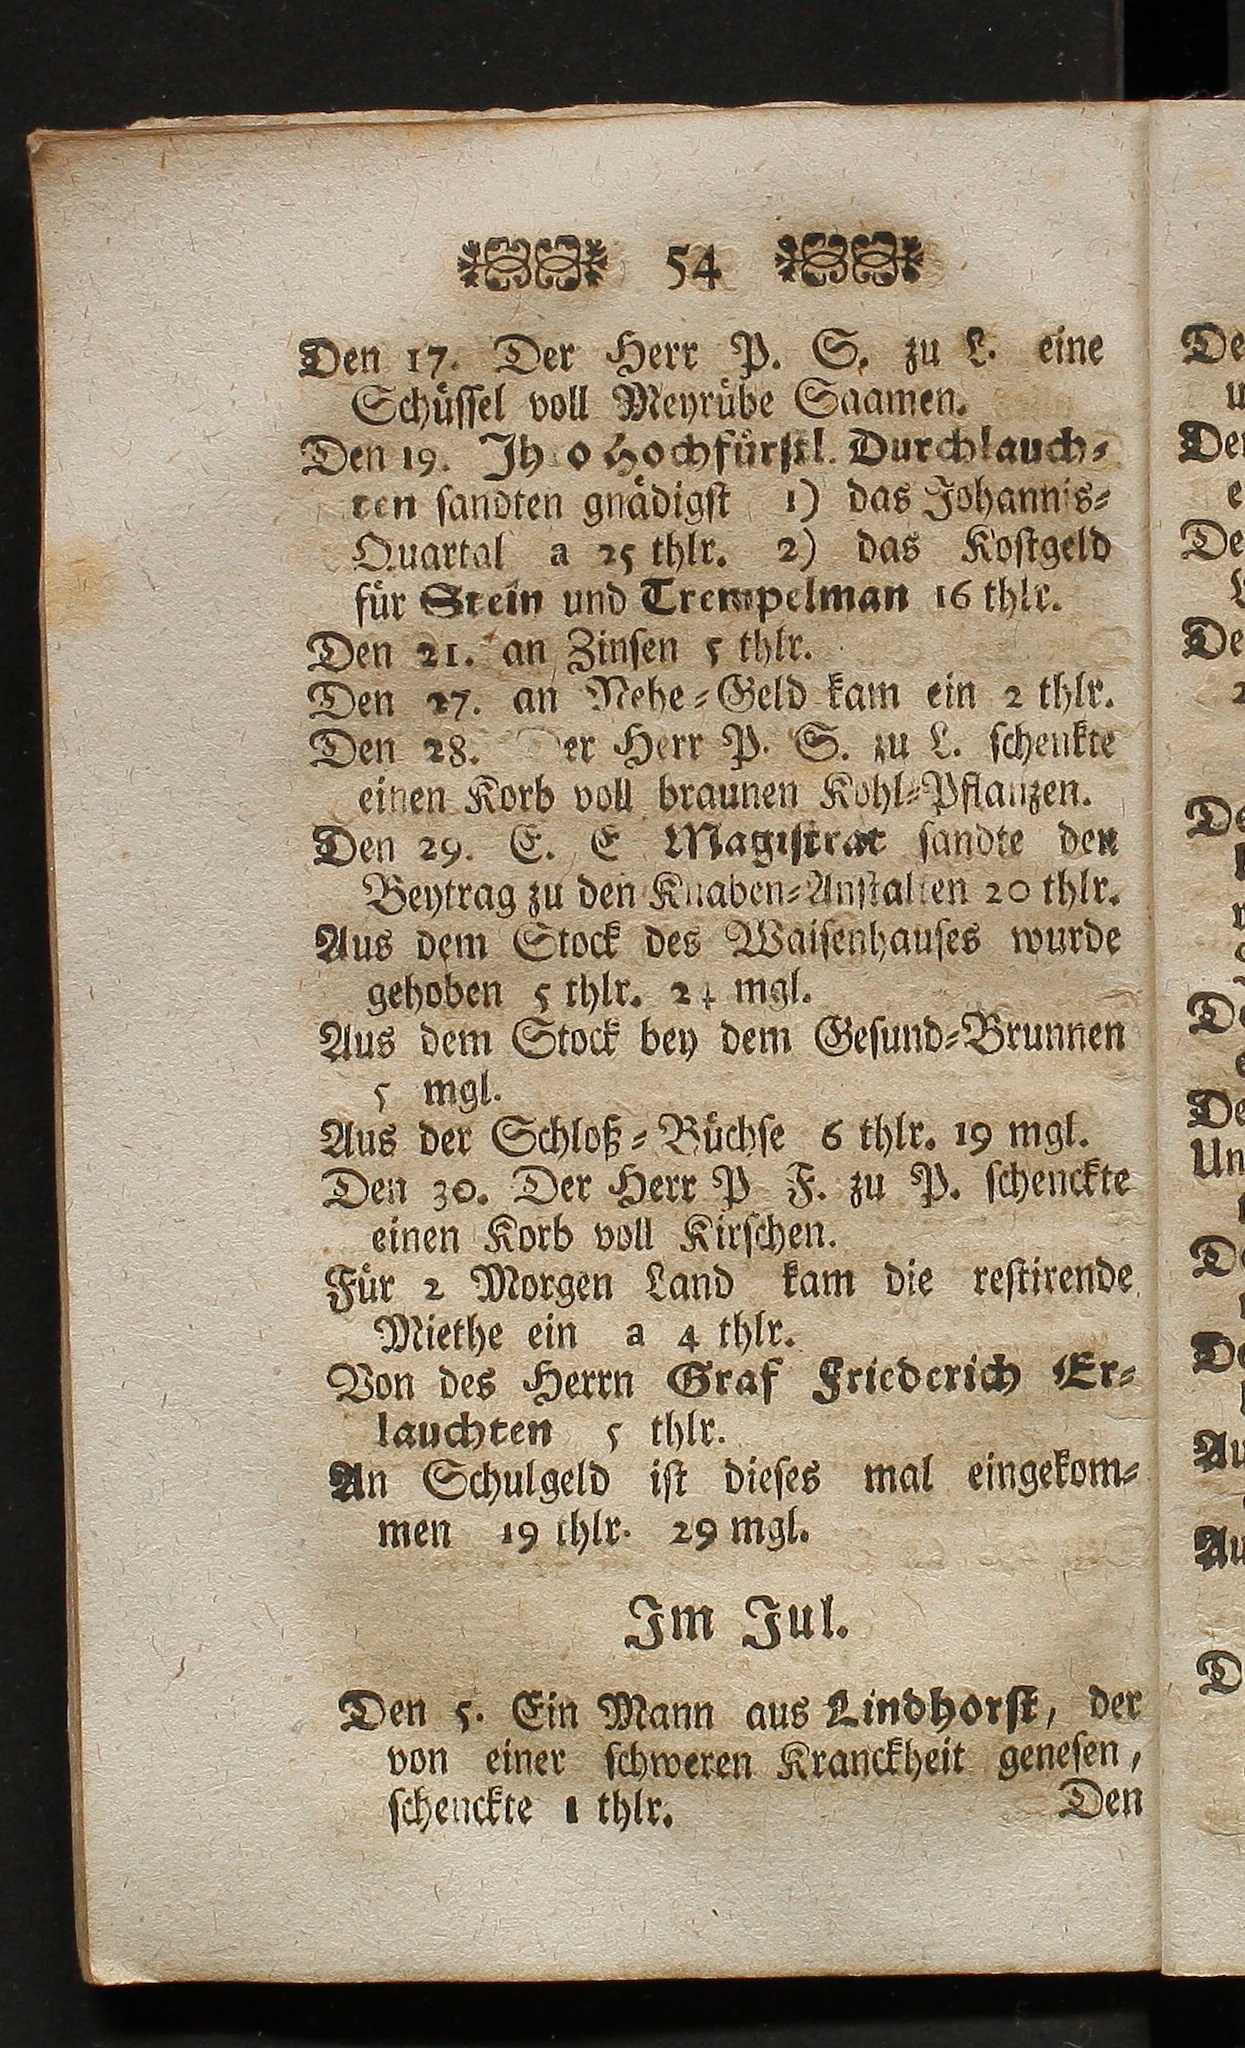 54
Den 17. Der Herr P. S. zu L. eine
Schüssel voll Meyrübe Saamen.
Den 19. Ih o Hochfürstl. Durchlauch-
ten sandten gnädigst 1) das Johannis-
Quartal a 25 thlr. 2) das Kostgeld
für Stein und Trempelman 16 thlr.
Den 21. an Zinsen 5 thlr.
Den 27. an Nehe-Geld kam ein 2 thlr.
Den 28. Der Herr P. S. zu L. schenkte
einen Korb voll braunen Kohl-Pflanzen.
Den 29. E. E Magistrat sandte den
Beytrag zu den Knaben-Anstalten 20 thlr.
Aus dem Stock des Waisenhauses wurde
gehoben 5 thlr. 24 mgl.
Aus dem Stock bey dem Gesund-Brunnen
5 mgl.
Aus der Schloß-Büchse 6 thlr. 19 mgl.
Den 30. Der Herr P F. zu P. schenckte
einen Korb voll Kirschen.
Für 2 Morgen Land kam die restirende
Miethe ein a 4 thlr.
Von des Herrn Graf Friederich Er-
lauchten 5 thlr.
An Schulgeld ist dieses mal eingekom-
men 19 thlr. 29 mgl.
Im Jul.
Den 5. Ein Mann aus Lindhorst, der
von einer schweren Kranckheit genesen,
schenckte 1 thlr.
Den